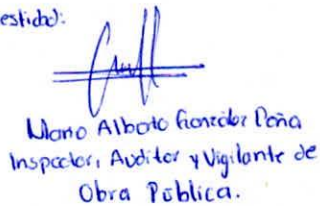 Mario Alberto González Peña
Inspector, Auditor y Vigilante de
Obra Pública.